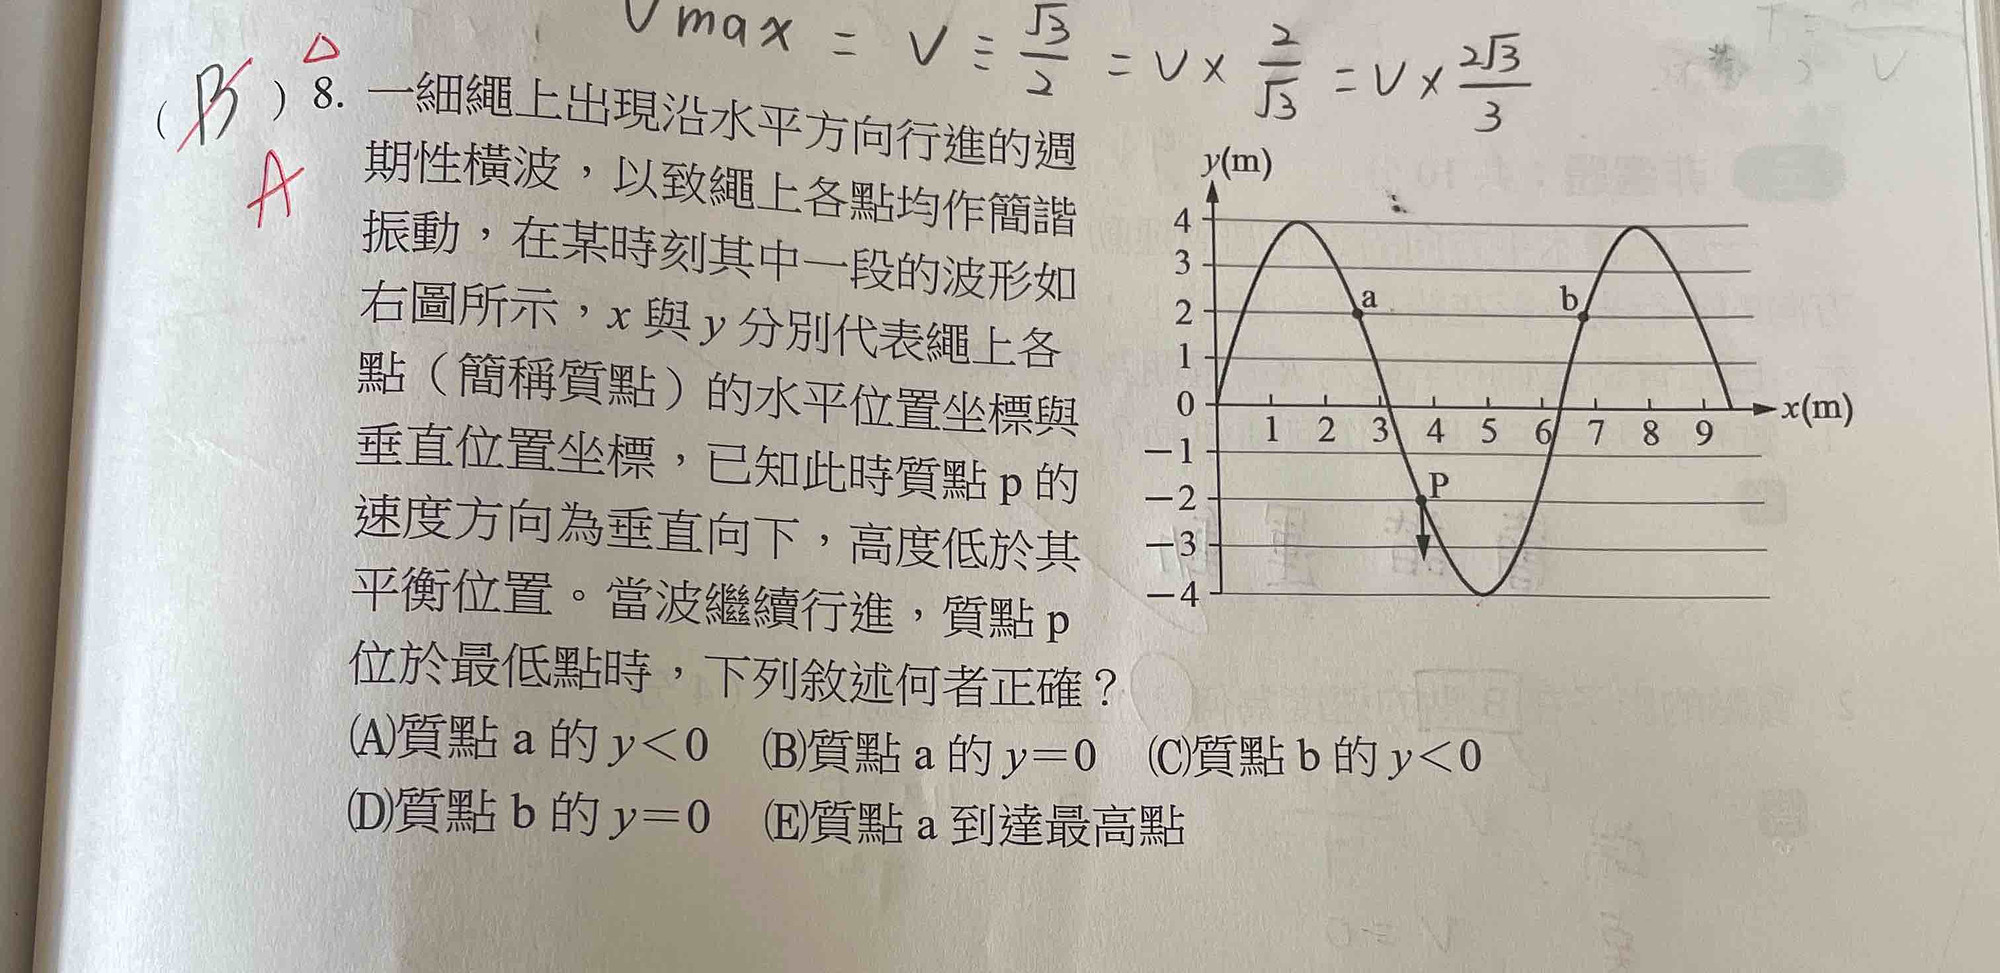 Vmax = V ÷ √3/2 = V × 2/√3 = V × 2√3/3
( B ) △ 8. 一細繩上出現沿水平方向行進的週
A
期性橫波，以致繩上各點均作簡諧
振動，在某時刻其中一段的波形如
右圖所示，x 與 y 分別代表繩上各
點（簡稱質點）的水平位置坐標與
垂直位置坐標，已知此時質點 p 的
速度方向為垂直向下，高度低於其
平衡位置。當波繼續行進，質點 p
位於最低點時，下列敘述何者正確？
(A)質點 a 的 y＜0 (B)質點 a 的 y＝0 (C)質點 b 的 y＜0
(D)質點 b 的 y＝0 (E)質點 a 到達最高點
y(m)
4
3
2
1
0
－1
－2
－3
－4
a
b
P
1 2 3 4 5 6 7 8 9
x(m)